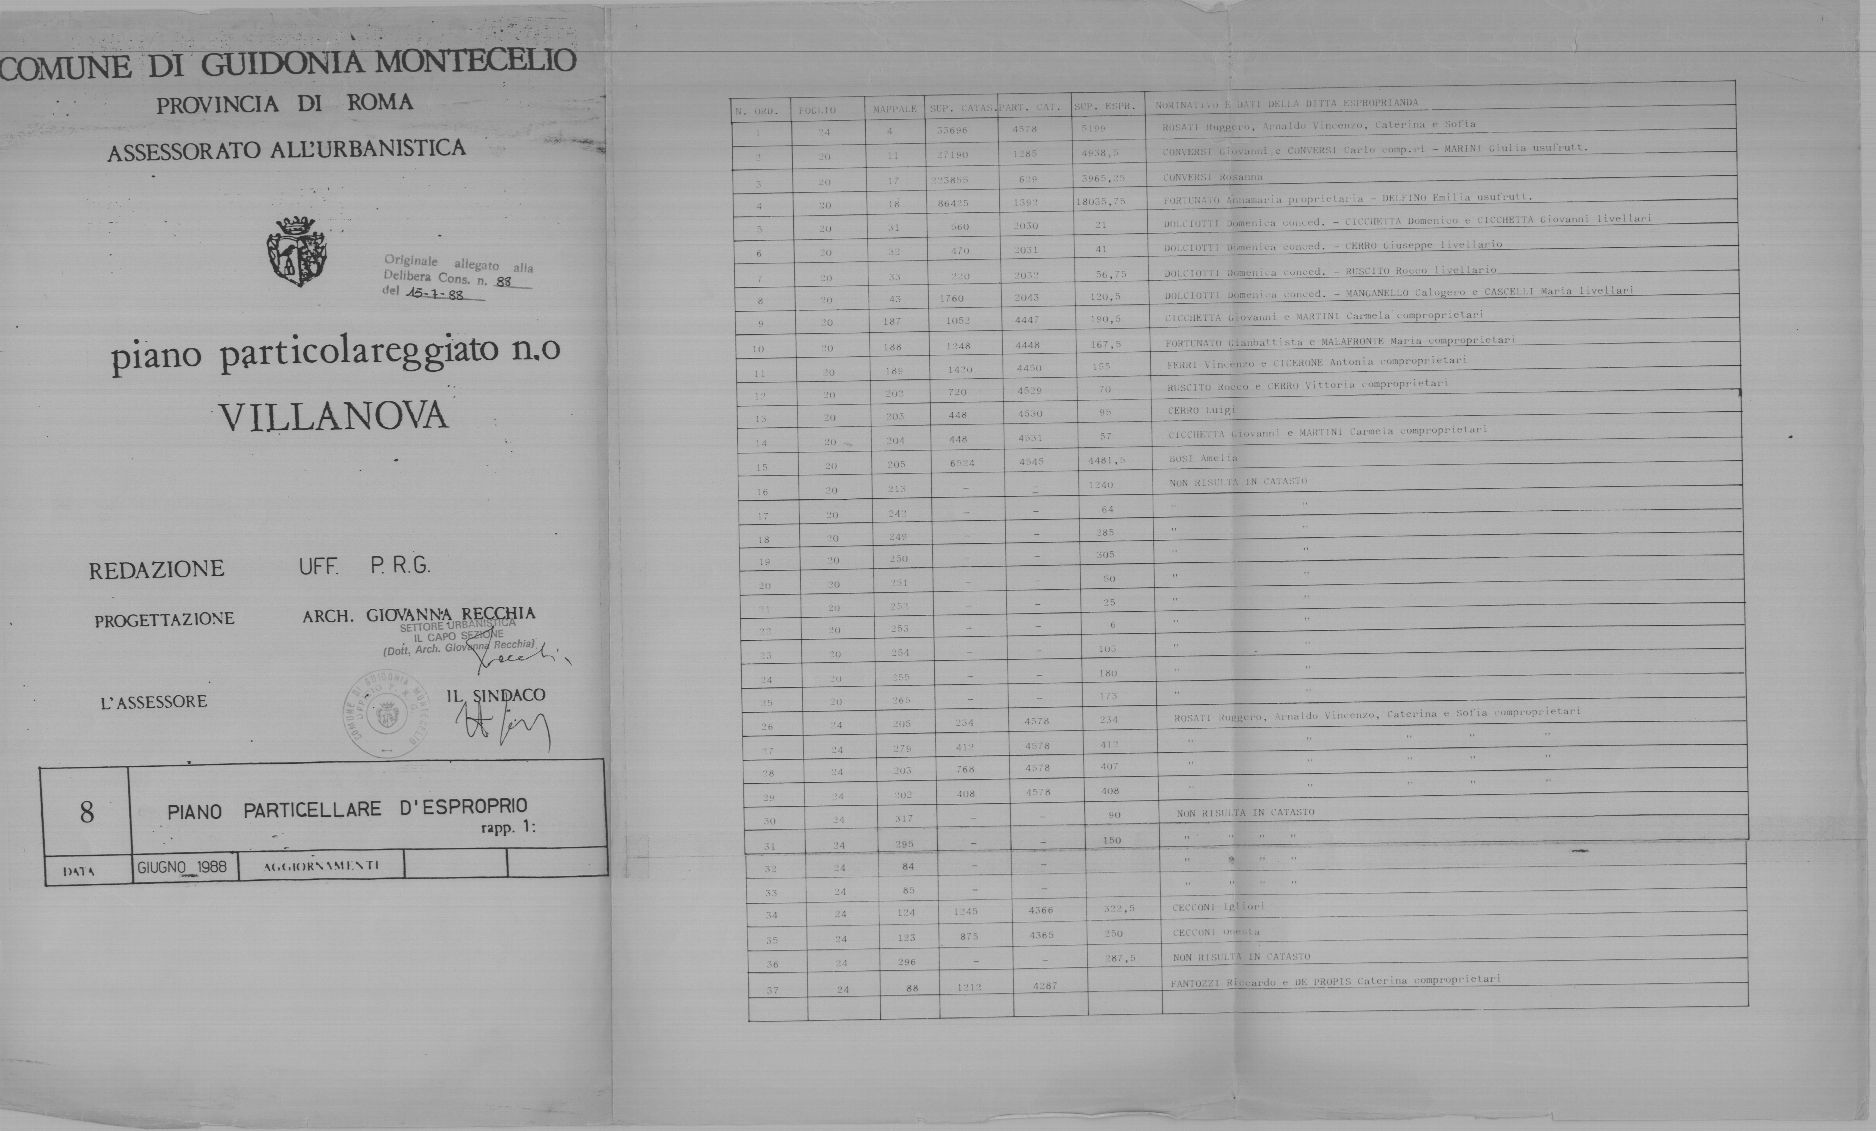 COMUNE DI GUIDONIA MONTECELIO
PROVINCIA DI ROMA
ASSESSORATO ALL'URBANISTICA
Originale allegato alla
Delibera Cons. n. 88
del 15-7-88
piano particolareggiato n.o
VILLANOVA
REDAZIONE UFF. P.R.G.
PROGETTAZIONE ARCH. GIOVANNA RECCHIA
SETTORE URBANISTICA
IL CAPO SEZIONE
(Dott. Arch. Giovanna Recchia)
L'ASSESSORE IL SINDACO
COMUNE DI GUIDONIA MONTECELIO
8 PIANO PARTICELLARE D'ESPROPRIO
rapp. 1:
DATA GIUGNO 1988 AGGIORNAMENTI
N. ORD. FOGLIO MAPPALE SUP. CATAS. PART. CAT. SUP. ESPR. NOMINATIVO E DATI DELLA DITTA ESPROPRIANDA
1 24 4 33696 4578 5199 ROSATI Ruggero, Arnaldo Vincenzo, Caterina e Sofia
2 20 11 27190 1285 4938,5 CONVERSI Giovanni e CONVERSI Carlo comp.ri - MARINI Giulia usufrutt.
3 20 17 223855 629 3965,25 CONVERSI Rosanna
4 20 18 86425 1392 18035,75 FORTUNATO Annamaria proprietaria - DELFINO Emilia usufrutt.
5 20 31 560 2030 21 DOLCIOTTI Domenica conced. - CICCHETTA Domenico e CICCHETTA Giovanni livellari
6 20 32 470 2031 41 DOLCIOTTI Domenica conced. - CERRO Giuseppe livellario
7 20 33 220 2032 56,75 DOLCIOTTI Domenica conced. - RUSCITO Rocco livellario
8 20 43 1760 2043 120,5 DOLCIOTTI Domenica conced. - MANGANELLO Calogero e CASCELLI Maria livellari
9 20 187 1052 4447 190,5 CICCHETTA Giovanni e MARTINI Carmela comproprietari
10 20 188 1248 4448 167,5 FORTUNATO Gianbattista e MALAFRONTE Maria comproprietari
11 20 189 1420 4450 155 FERRI Vincenzo e CICERONE Antonia comproprietari
12 20 202 720 4529 70 RUSCITO Rocco e CERRO Vittoria comproprietari
13 20 203 448 4530 95 CERRO Luigi
14 20 204 448 4531 57 CICCHETTA Giovanni e MARTINI Carmela comproprietari
15 20 205 6524 4545 4481,5 BUSI Amelia
16 20 213 - - 1240 NON RISULTA IN CATASTO
17 20 242 - - 64 " "
18 20 249 - - 285 " "
19 20 250 - - 305 " "
20 20 251 - - 50 " "
21 20 252 - - 25 " "
22 20 253 - - 6 " "
23 20 254 - - 105 " "
24 20 255 - - 180 " "
25 20 265 - - 173 " "
26 24 205 234 4578 234 ROSATI Ruggero, Arnaldo Vincenzo, Caterina e Sofia comproprietari
27 24 279 412 4578 412 " " " " "
28 24 203 768 4578 407 " " " " "
29 24 202 408 4578 408 " " " " "
30 24 317 - - 90 NON RISULTA IN CATASTO
31 24 295 - - 150 " " " "
32 24 84 - - " " " "
33 24 85 - - " " " "
34 24 124 1245 4366 322,5 CECCONI Igliori
35 24 123 875 4365 250 CECCONI
36 24 296 - - 287,5 NON RISULTA IN CATASTO
37 24 88 1212 4287 FANTOZZI Riccardo e DE PROPIS Caterina comproprietari